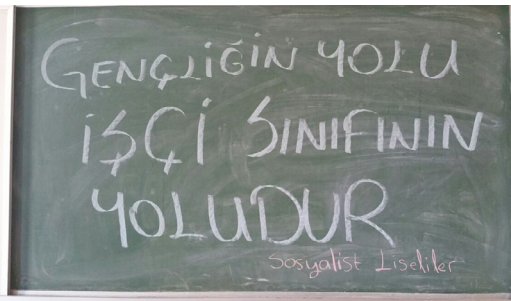 GENÇLİĞİN YOLU
İŞÇİ SINIFININ
YOLUDUR
Sosyalist Liseliler